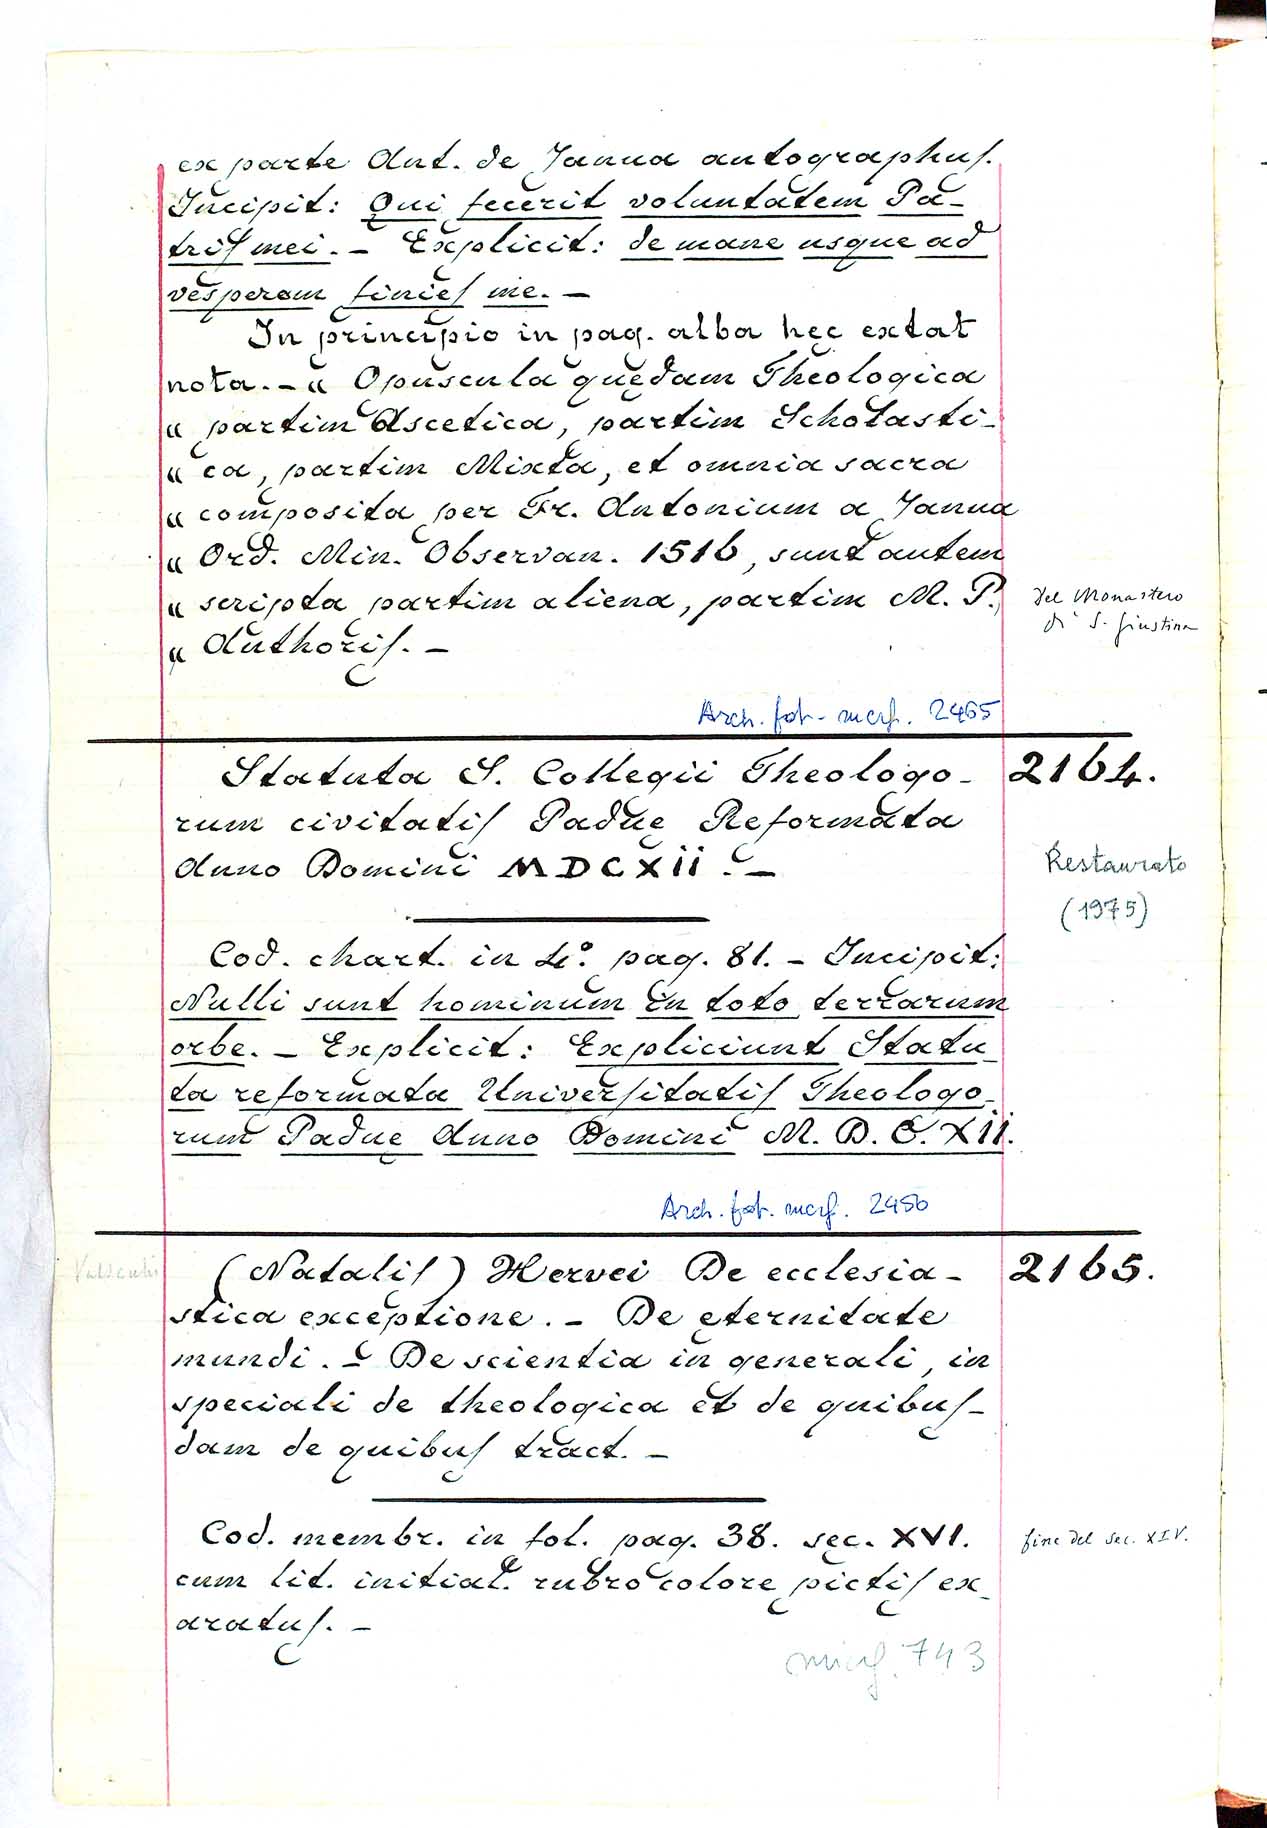 ex parte Ant. de Janua autographus.
Incipit: Qui fecerit voluntatem Pa-
tris mei. - Explicit: de mane usque ad
vesperam finies me. -
In principio in pag. alba hęc extat
nota. - „ Opuscula quędam Theologica
„ partim Ascetica, partim Scholasti-
„ ca, partim Mixta, et omnia sacra
„ composita per Fr. Antonium a Janua
„ Ord. Min. Observan. 1516, sunt autem
„ scripta partim aliena, partim M. P.
„ Authoris. -
del Monastero
di S. Giustina
Arch. fot. - micrf. 2455
Statuta S. Collegii Theologo-
rum civitatis Paduę Reformata
Anno Domini MDCXII. -
2164.
Restaurato
(1975)
Cod. chart. in 4.° pag. 81. - Incipit:
Nulli sunt hominum in toto terrarum
orbe. - Explicit: Expliciunt Statu-
ta reformata Universitatis Theologo-
rum Paduę Anno Domini M. D. C. XII.
Arch. fot. micrf. 2456
(Natalis) Hervei De ecclesia-
stica exceptione. - De ęternitate
mundi. - De scientia in generali, in
speciali de theologica et de quibus-
dam de quibus tract. -
2165.
Cod. membr. in fol. pag. 38. sec. XVI.
cum lit. initial. rubro colore pictis ex-
aratus. -
fine del sec. XIV.
micrf. 743